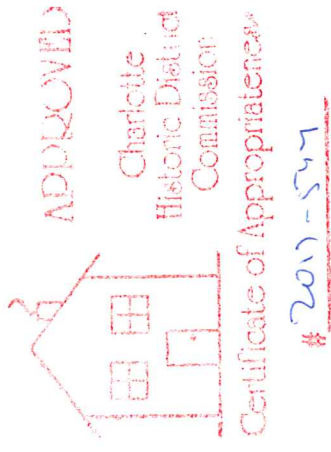 APPROVED
Charlotte
Historic District
Commission
Certificate of Appropriateness
# 2017-544